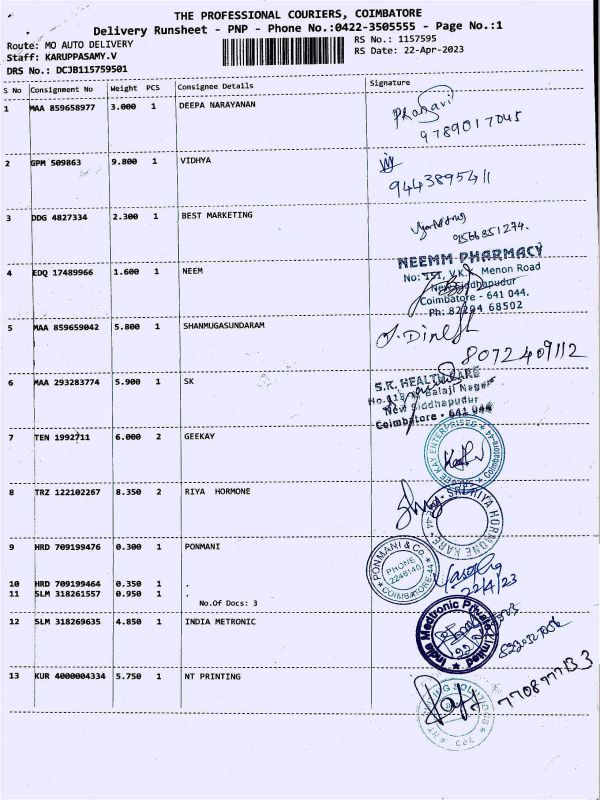 THE PROFESSIONAL COURIERS, COIMBATORE
Delivery Runsheet - PNP - Phone No.:0422-3505555 - Page No.:1
Route: MO AUTO DELIVERY RS No.: 1157595
Staff: KARUPPASAMY.V RS Date: 22-Apr-2023
DRS No.: DCJB115759501
S No Consignment No Weight PCS Consignee Details Signature
1 MAA 859658977 3.000 1 DEEPA NARAYANAN
9789017045
2 GPM 509863 9.800 1 VIDHYA
9443895411
3 DDG 4827334 2.300 1 BEST MARKETING
9566851274.
NEEMM PHARMACY
No: 151, V.K.K. Menon Road
New Siddhapudur
Coimbatore - 641 044.
Ph: 82204 68502
4 EDQ 17489966 1.600 1 NEEM
5 MAA 859659042 5.800 1 SHANMUGASUNDARAM
J. Dinesh
8072409112
6 MAA 293283774 5.900 1 SK
S.K. HEALTH CARE
Balaji Nagar
New Siddhapudur
Coimbatore - 641 044
7 TEN 1992711 6.000 2 GEEKAY
GEE KAY ENTERPRISES Coimbatore-44
8 TRZ 122102267 8.350 2 RIYA HORMONE
SRI RIYA HORMONE KARE
9 HRD 709199476 0.300 1 PONMANI
PONMANI & CO
PHONE
2246140
COIMBATORE-44
22/4/23
10 HRD 709199464 0.350 1 .
11 SLM 318261557 0.950 1 .
No.Of Docs: 3
12 SLM 318269635 4.850 1 INDIA METRONIC
India Medtronic Private Limited
13 KUR 4000004334 5.750 1 NT PRINTING
7708977133